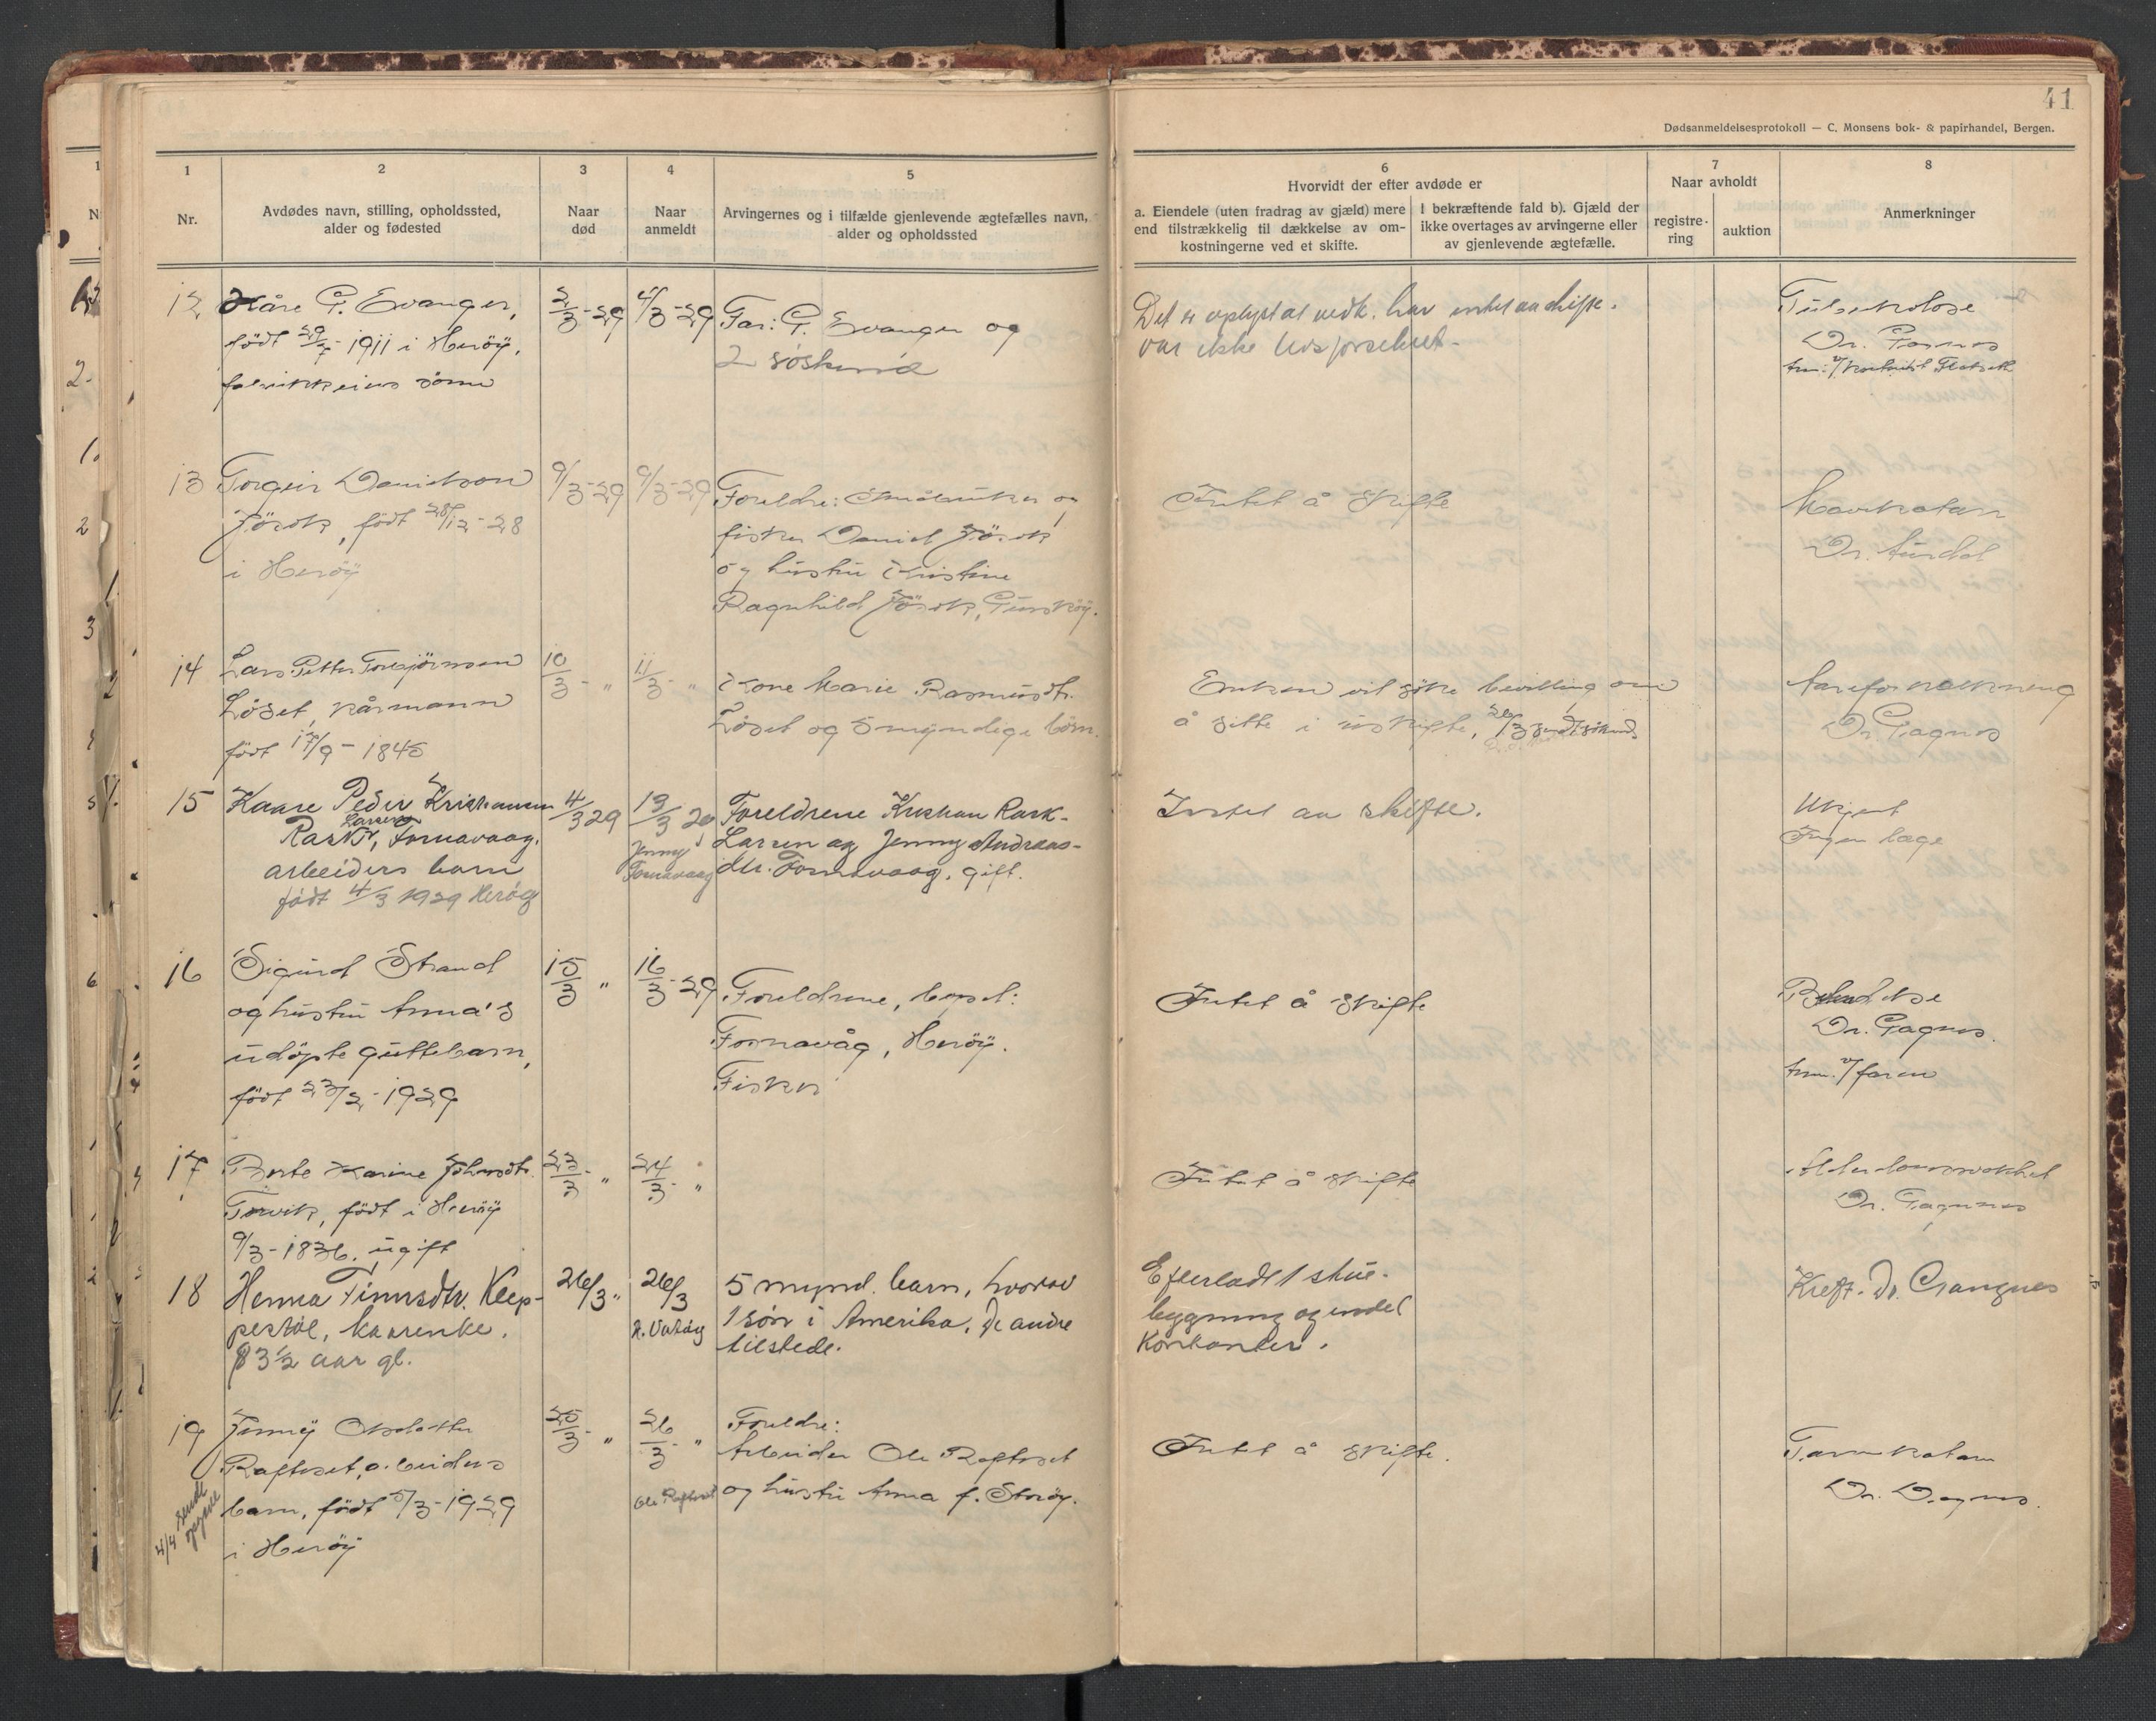 41
Dødsanmeldelsesprotokoll — C. Monsens bok- & papirhandel, Bergen.
1
Nr.
2
Avdødes navn, stilling, opholdssted,
alder og fødested
3
Naar
død
4
Naar
anmeldt
5
Arvingernes og i tilfælde gjenlevende ægtefælles navn,
alder og opholdssted
6
Hvorvidt der efter avdøde er
a. Eiendele (uten fradrag av gjæld) mere
end tilstrækkelig til dækkelse av om-
kostningerne ved et skifte.
I bekræftende fald b). Gjæld der
ikke overtages av arvingerne eller
av gjenlevende ægtefælle.
7
Naar avholdt
registre-
ring
auktion
8
Anmerkninger
12
Kåre G. Evanger,
født 29/7 - 1911 i Herøy,
sønn
2/3 - 29
4/3 - 29
Far: G. Evanger og
2 søskend
Det er oplyst at vedk. har intet aa skifte.
var ikke livsforsikret.
Tuberkulose
Dr.
13
Torgeir Danielson
Jøsok, født 28/12 - 28
i Herøy
9/3 - 29
9/3 - 29
Foreldre: Småbruker og
fisker Daniel Jøsok
og hustru Kristine
Ragnhild Jøsok, Gurskøy.
Intet å skifte
Dr. Aurdal
14
Lars Petter Torbjørnsen
Løset, kårmann
født 17/9 - 1845
10/3 - "
11/3 - "
Kone Marie Rasmusdtr.
Løset og 5 myndige børn.
Enken vil søke bevilling om
å sitte i uskifte, 26/3
Aareforkalkning
Dr Gagnes
15
Kaare Peder Kristiansen
Larsen
Rask, Fosnavaag.
arbeiders barn
født 4/3 1929 Herøy
4/3 29
13/3 29
Jenny
Fosnavaag
Foreldrene Kristian Rask-
Larsen og Jenny Andreas-
dtr. Fosnavaag, gift.
Intet aa skifte.
Ukjent
Ingen læge
16
Sigurd Strand
og hustru Anna's
udøpte guttebarn,
født 23/2 - 1929
15/3 "
16/3 - 29
Foreldrene, bopel:
Fosnavåg, Herøy.
Fisker
Intet å skifte
Dr. Gagnes.
Anm. v/ faren
17
Berte Karine Johnsdtr.
Torvik, født i Herøy
9/3 - 1836, ugift
23/3 - "
24/3 - "
Intet å skifte
Alderdomssvakhet
Dr. Gagnes
18
Henna Finnsdtr. Klep-
pestøl, kaarenke.
83 1/2 aar gl.
26/3 "
26/3
5 mynd. barn, hvorav
1 søn i Amerika. De andre
tilstede.
Efterladt 1 stue-
bygning og endel
Kontanter.
Kreft. Dr. Gangnes
19
Jenny Olsdatter
Raftset, arbeiders
barn, født 5/3 - 1929
i Herøy
4/4 sendt
opgave
25/3 - "
26/3 - "
Ole Raftset
Foreldre:
Arbeider Ole Raftset
og hustru Anna f. Storøy.
Intet å skifte.
Tarmkatarr